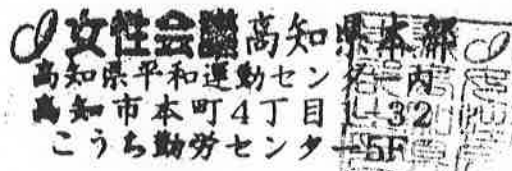 女性会議高知県本部
高知県平和運動センター内
高知市本町4丁目1-32
こうち勤労センター5F